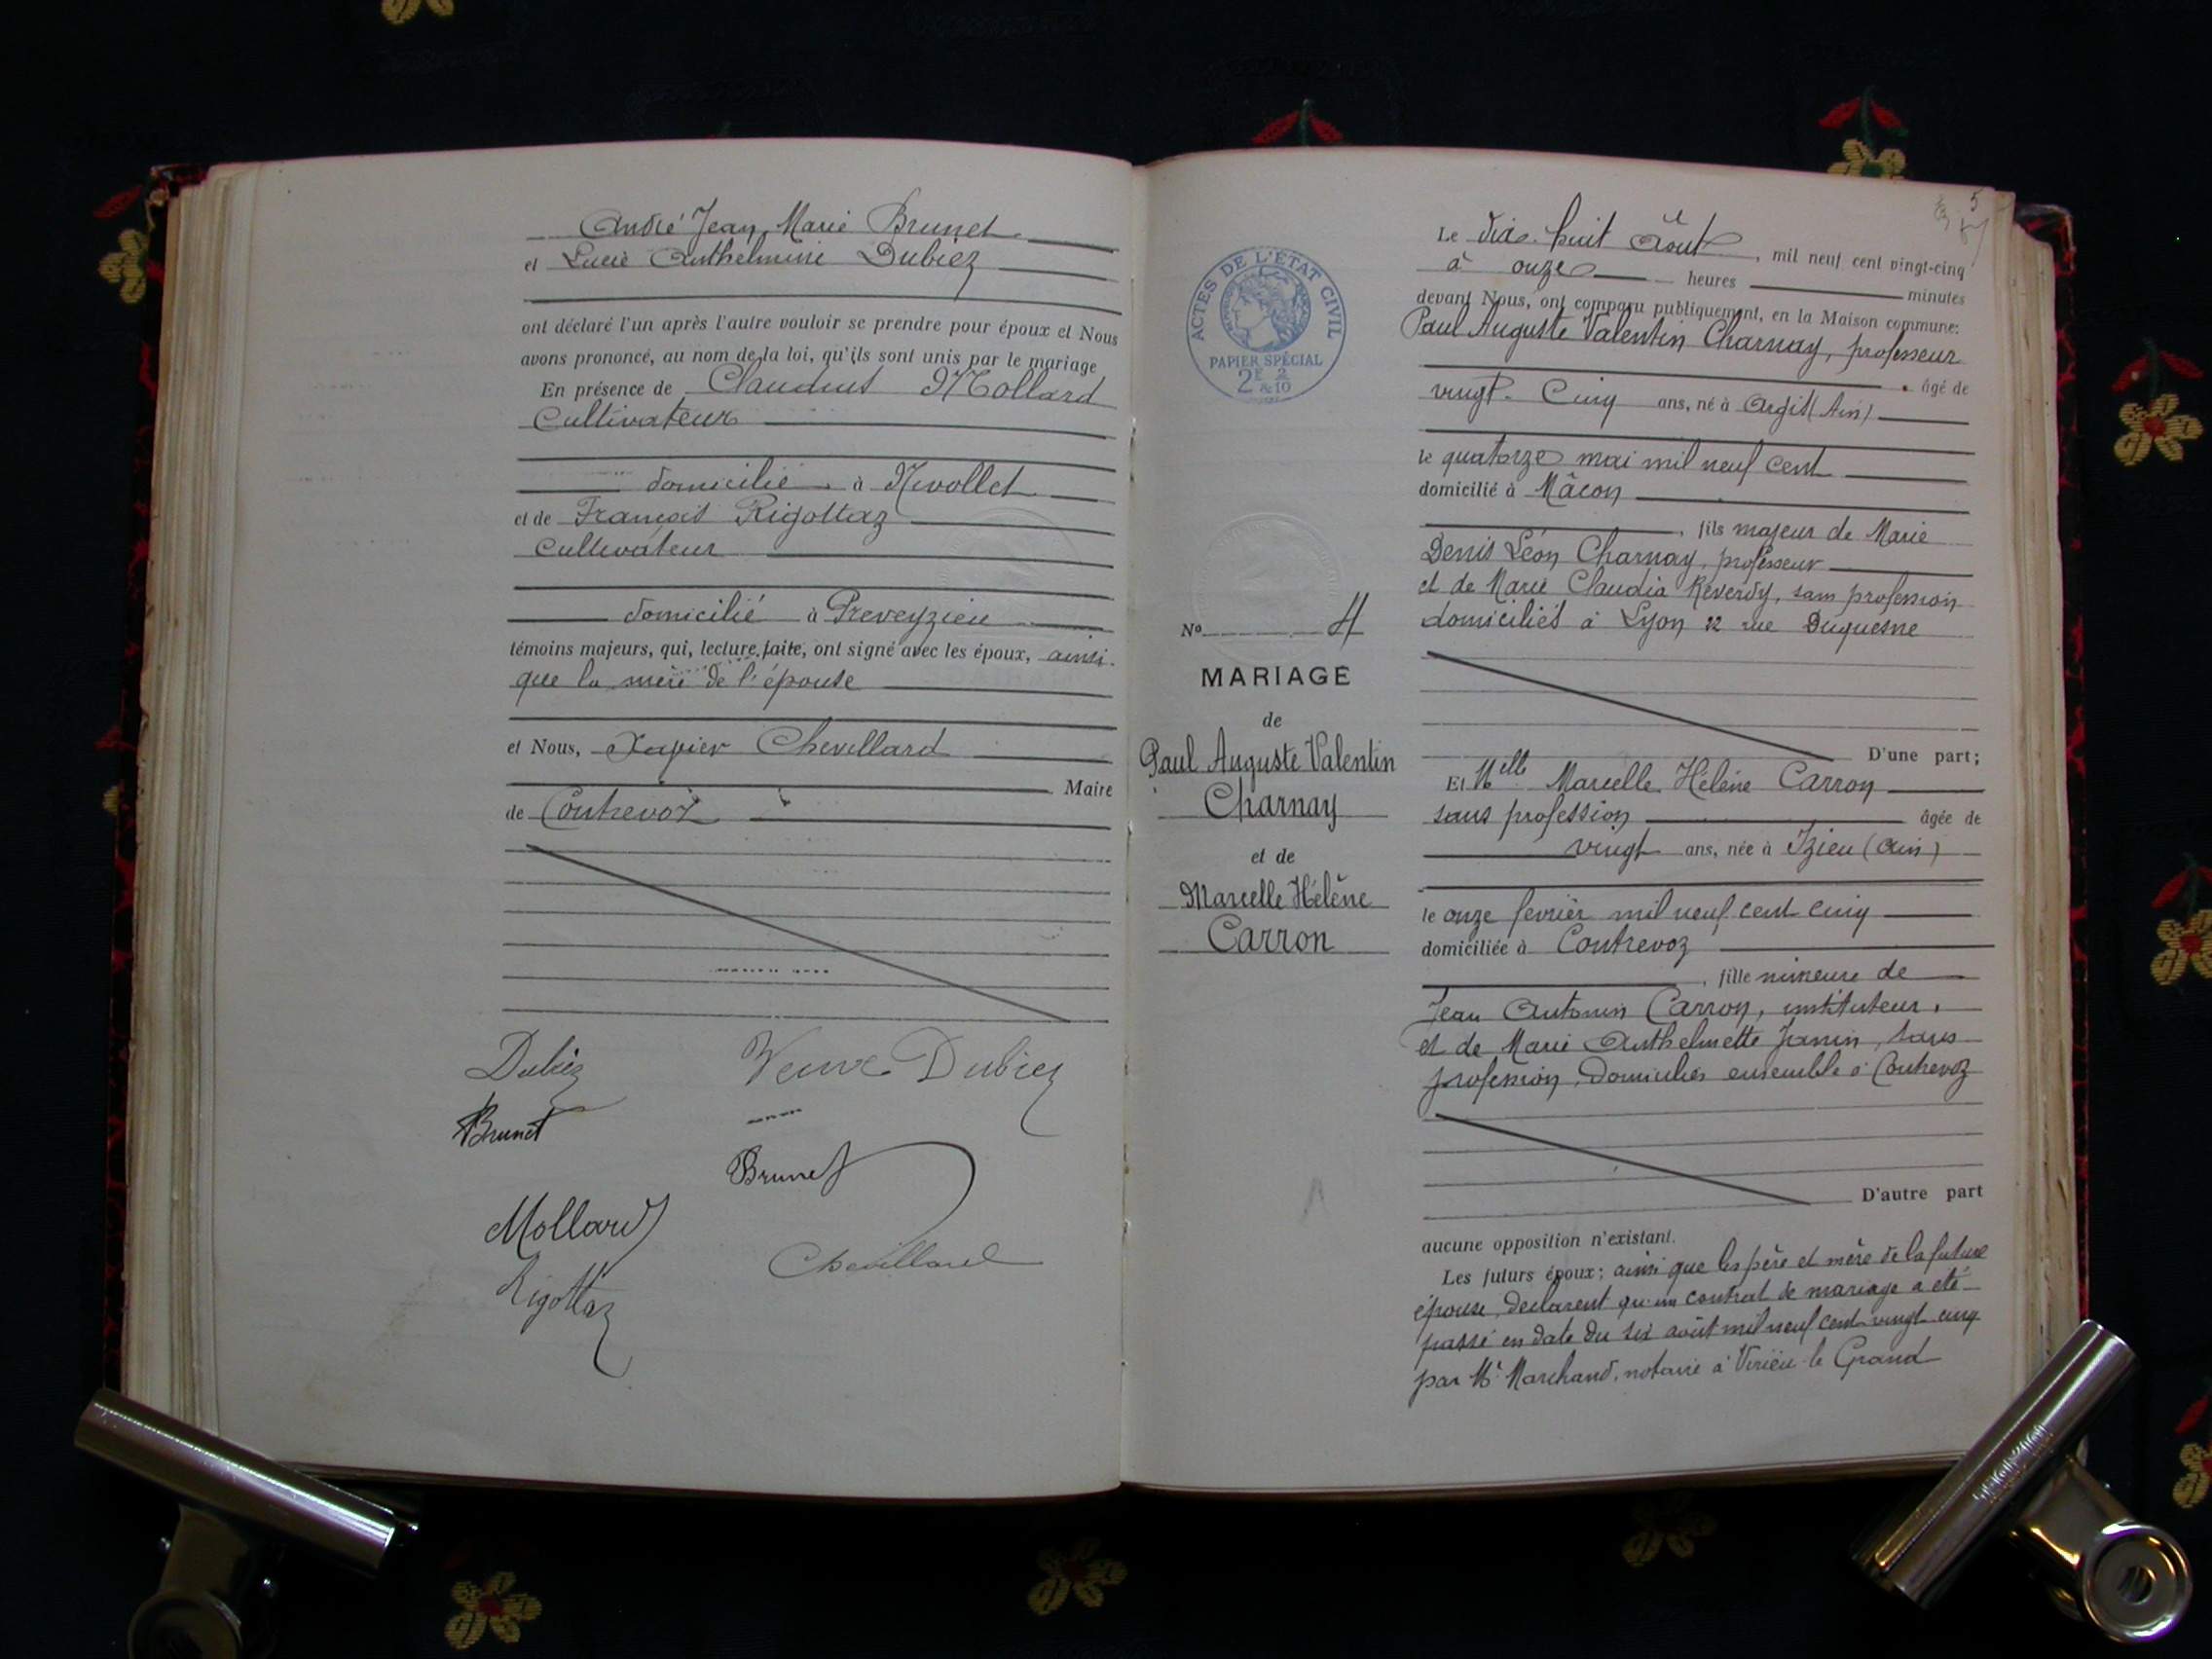 André Jean Marie Brunet
et Lucie Anthelmine Dubiez
ont déclaré l'un après l'autre vouloir se prendre pour époux et Nous
avons prononcé, au nom de la loi, qu'ils sont unis par le mariage
En présence de Claudius Mollard
Cultivateur
domicilié à Nivollet
et de François Rigottaz
Cultivateur
domicilié à Preveyzieu
témoins majeurs, qui, lecture faite, ont signé avec les époux, ainsi
que la mère de l'épouse
et Nous, Xavier Chevillard
Maire
de Contrevoz
Dubiez Veuve Dubiez
Brunet
Brunet
Mollard
Chevillard
Rigottaz
ACTES DE L'ÉTAT CIVIL
PAPIER SPÉCIAL
No 4
MARIAGE
de
Paul Auguste Valentin
Charnay
et de
Marcelle Hélène
Carron
5
Le dix-huit Août, mil neuf cent vingt-cinq
à onze heures minutes
devant Nous, ont comparu publiquement, en la Maison commune:
Paul Auguste Valentin Charnay, professeur
âgé de
vingt-cinq ans, né à Argis (Ain)
le quatorze mai mil neuf cent
domicilié à Mâcon
, fils majeur de Marie
Denis Léon Charnay, professeur
et de Marie Claudia Reverdy, sans profession
domiciliés à Lyon 12 rue Duquesne
D'une part;
Et Melle Marcelle Hélène Carron
sans profession âgée de
vingt ans, née à Izieu (Ain)
le onze février mil neuf cent cinq
domiciliée à Contrevoz
, fille mineure de
Jean Antonin Carron, instituteur,
et de Marie Anthelmette Janin, sans
profession, domiciliés ensemble à Contrevoz
D'autre part
aucune opposition n'existant.
Les futurs époux; ainsi que les père et mère de la future
épouse, déclarent qu'un contrat de mariage a été
passé en date du six août mil neuf cent vingt cinq
par Me Marchand, notaire à Virieu-le Grand